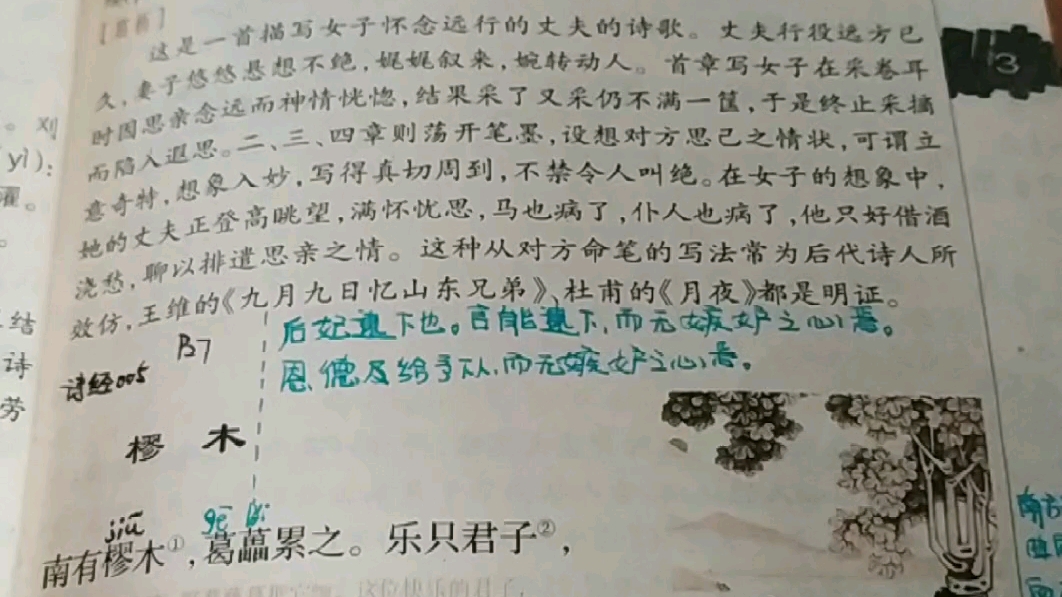 【赏析】
这是一首描写女子怀念远行的丈夫的诗歌。丈夫行役远方已
久，妻子悠悠悬想不绝，娓娓叙来，婉转动人。首章写女子在采卷耳
时因思亲念远而神情恍惚，结果采了又采仍不满一筐，于是终止采摘
而陷入遐思。二、三、四章则荡开笔墨，设想对方思己之情状，可谓立
意奇特，想象入妙，写得真切周到，不禁令人叫绝。在女子的想象中，
她的丈夫正登高眺望，满怀忧思，马也病了，仆人也病了，他只好借酒
浇愁，聊以排遣思亲之情。这种从对方命笔的写法常为后代诗人所
效仿，王维的《九月九日忆山东兄弟》、杜甫的《月夜》都是明证。
3
。刘
yì）：
濯。
。
结
诗
劳
后妃逮下也。言能逮下，而无嫉妒之心焉。
恩德及给予下人，而无嫉妒之心焉。
B7
诗经005
樛木
jiū
gě lěi
南有樛木①，葛藟累之。乐只君子②，
南方